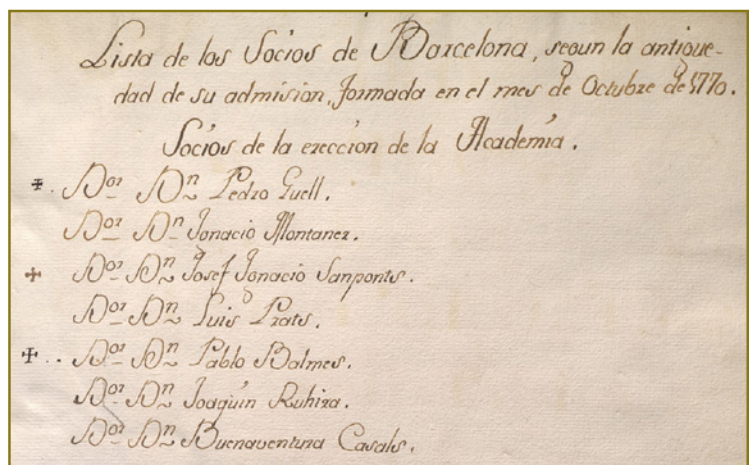 Lista de los Socios de Barcelona, segun la antigue-
dad de su admision, formada en el mes de Octubre de 1770.
Socios de la ereccion de la Academia.
✠. Dor. Dn. Pedro Guell.
Dor. Dn. Ignacio Montaner.
✠ Dor. Dn. Josef Ignacio Sanponts.
Dor. Dn. Luis Prats.
✠.. Dor. Dn. Pablo Balmes.
Dor. Dn. Joaquin Ruhira.
Dor. Dn. Buenaventura Casals.